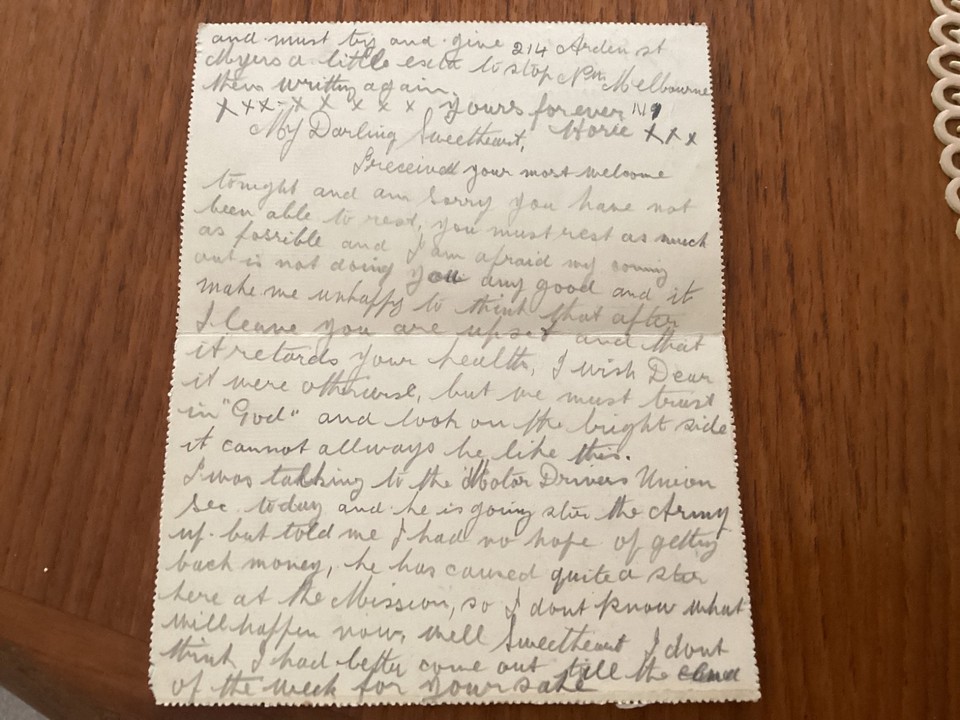 and must try and give 214 Arden st
Myers a little extra to stop Nth Melbourne
them writting again. N1
x x x - x x x x x yours forever
My Darling Sweetheart, Horie x x x
I received your most welcome
tonight and am sorry you have not
been able to rest, you must rest as much
as possible and I am afraid my coming
out is not doing you any good and it
make me unhappy to think that after
I leave you are upset and that
it retards your health, I wish Dear
it were otherwise, but we must trust
in "God" and look on the bright side
it cannot allways be like this.
I was talking to the Motor Drivers Union
Sec. today and he is going stir the Army
up. but told me I had no hope of getting
back money, he has caused quite a stir
here at the Mission, so I dont know what
will happen now, well Sweetheart I dont
think I had better come out till the end
of the week for your sake